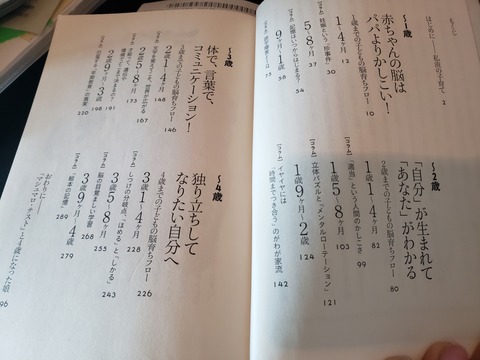 もくじ
はじめに——私流の子育て 2
～1歳
赤ちゃんの脳は
パパよりかしこい！
1歳までの子どもの脳育ちフロー 10
1〜4ヶ月 12
【コラム】妊娠という「珍事件」 30
5〜8ヶ月 37
【コラム】記憶はいつからはじまる？ 54
9ヶ月〜1歳 58
～2歳
「自分」が生まれて
「あなた」がわかる
2歳までの子どもの脳育ちフロー 80
1歳1〜4ヶ月 82
【コラム】「適当」という人間のかしこさ 99
1歳5〜8ヶ月 103
【コラム】立体パズルと「メンタルローテーション」 121
1歳9ヶ月〜2歳 124
【コラム】イヤイヤには
時間までつき合う」のがわが家流 142
～3歳
体で、言葉で、
コミュニケーション！
3歳までの子どもの脳育ちフロー 146
2歳1〜4ヶ月 148
世界が広がる 167
2歳5〜8ヶ月 173
191
2歳9ヶ月〜3歳 198
の真実 220
～4歳
独り立ちして
なりたい自分へ
4歳までの子どもの脳育ちフロー 226
3歳1〜4ヶ月 228
【コラム】しつけの分岐点、「ほめる」と「しかる」 243
3歳5〜8ヶ月 255
【コラム】脳の目覚ましい学習 268
3歳9ヶ月〜4歳 279
【コラム】「絵本の記憶」 289
おわりに
「マシュマロ・テスト」と4歳になった娘
96